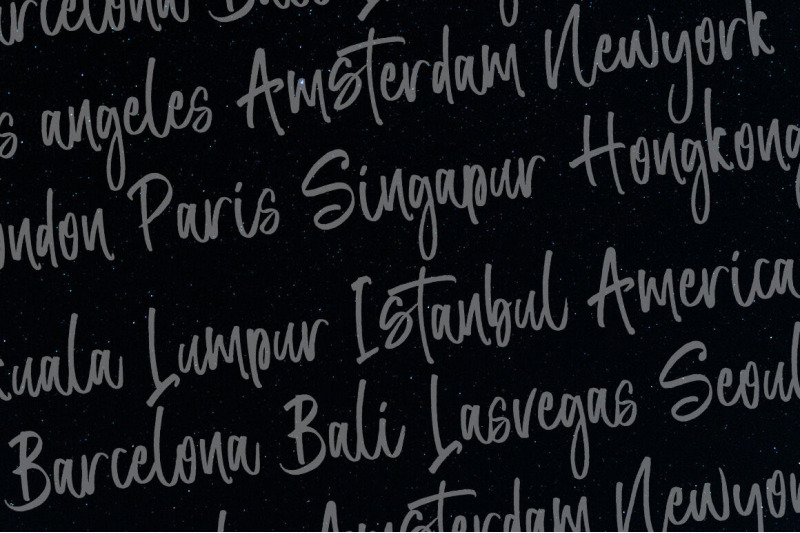 arcelona Bali
s angeles Amsterdam Newyork
ondon Paris Singapur Hongkong
kuala Lumpur Istanbul America
Barcelona Bali Lasvegas Seoul
Amsterdam Newyor